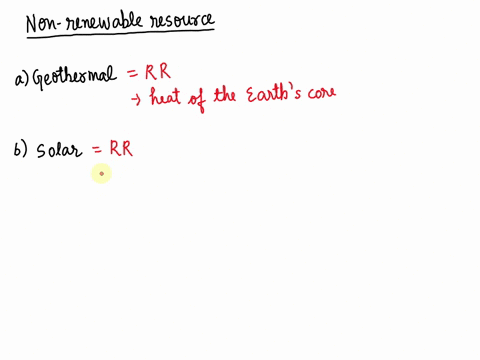 Non-renewable resource
a) Geothermal = RR
→ heat of the Earth's core
b) Solar = RR